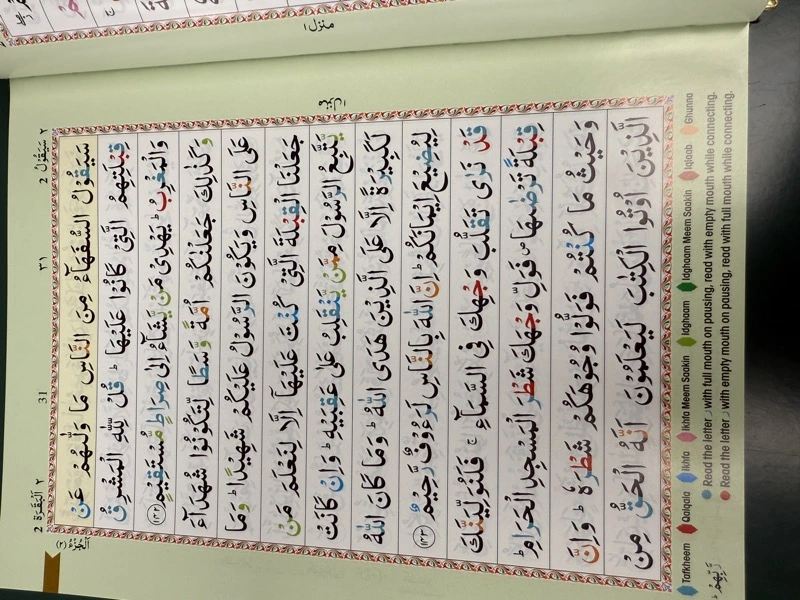 منزل ١
٢ سَيَقُوْلُ 2
٣١
31
٢ اَلْبَقَرَة 2
سَيَقُوْلُ السُّفَهَآءُ مِنَ النَّاسِ مَا وَلّٰىهُمْ عَنْ
قِبْلَتِهِمُ الَّتِيْ كَانُوْا عَلَيْهَا ؕ قُلْ لِّلّٰهِ الْمَشْرِقُ
وَالْمَغْرِبُ ؕ يَهْدِيْ مَنْ يَّشَآءُ اِلٰى صِرَاطٍ مُّسْتَقِيْمٍ ﴿١٤٢﴾
وَكَذٰلِكَ جَعَلْنٰكُمْ اُمَّةً وَّسَطًا لِّتَكُوْنُوْا شُهَدَآءَ
عَلَى النَّاسِ وَيَكُوْنَ الرَّسُوْلُ عَلَيْكُمْ شَهِيْدًا ؕ وَمَا
جَعَلْنَا الْقِبْلَةَ الَّتِيْ كُنْتَ عَلَيْهَآ اِلَّا لِنَعْلَمَ مَنْ
يَّتَّبِعُ الرَّسُوْلَ مِمَّنْ يَّنْقَلِبُ عَلٰى عَقِبَيْهِ ؕ وَاِنْ كَانَتْ
لَكَبِيْرَةً اِلَّا عَلَى الَّذِيْنَ هَدَى اللّٰهُ ؕ وَمَا كَانَ اللّٰهُ
لِيُضِيْعَ اِيْمَانَكُمْ ؕ اِنَّ اللّٰهَ بِالنَّاسِ لَرَءُوْفٌ رَّحِيْمٌ ﴿١٤٣﴾
قَدْ نَرٰى تَقَلُّبَ وَجْهِكَ فِي السَّمَآءِ ۚ فَلَنُوَلِّيَنَّكَ
قِبْلَةً تَرْضٰىهَا ۪ فَوَلِّ وَجْهَكَ شَطْرَ الْمَسْجِدِ الْحَرَامِ ؕ
وَحَيْثُ مَا كُنْتُمْ فَوَلُّوْا وُجُوْهَكُمْ شَطْرَهٗ ؕ وَاِنَّ
الَّذِيْنَ اُوْتُوا الْكِتٰبَ لَيَعْلَمُوْنَ اَنَّهُ الْحَقُّ مِنْ
رَّبِّهِمْ ؕ
Tafkheem Qalqala Ikhfa Ikhfa Meem Saakin Idghaam Idghaam Meem Saakin Iqlaab Ghunna
Read the letter ر with full mouth on pausing, read with empty mouth while connecting.
Read the letter ر with empty mouth on pausing, read with full mouth while connecting.